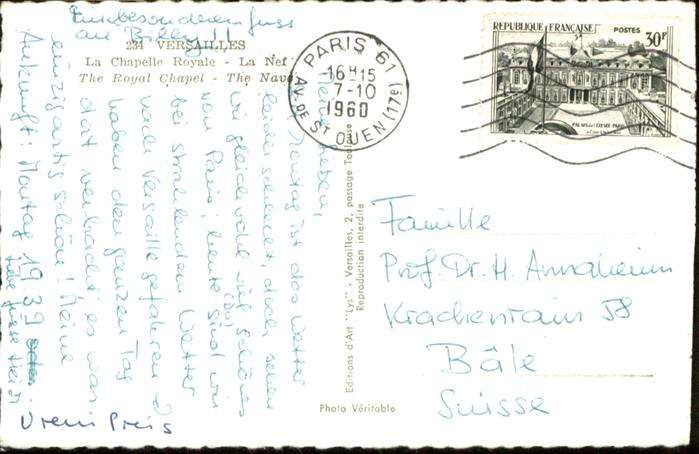 Einen besonderen Gruss
an Billy!!
234 VERSAILLES
La Chapelle Royale - La Nef
The Royal Chapel - The Nave
PARIS 61
16H15
7-10
1960
AV. DE ST OUEN (17e)
REPUBLIQUE FRANÇAISE
POSTES
30F
Montag ist das Wetter
leider schlecht, doch sehen
wir gleichwohl viel schönes
von Paris; heute sind wir
bei strahlendem Wetter
nach Versaille gefahren &
haben den ganzen Tag
dort verbracht; es war
einzigartig schön! Meine
Ankunft: Montag 19.39
Vreni Preis
Editions d'Art "Lys" - Versailles, 2, passage Toulouse
Reproduction interdite
Photo Véritable
Familie
Prof. Dr. H. Annaheim
Krachenrain 58
Bâle
Suisse